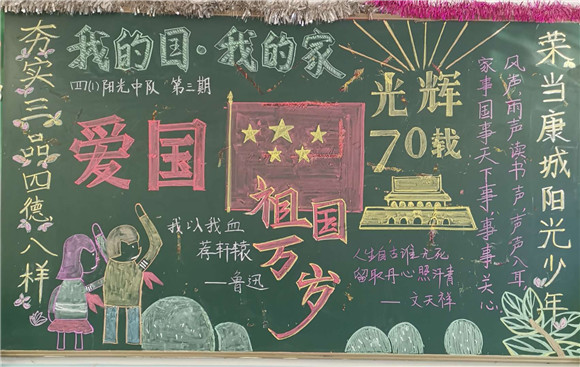 夯实三品四德八样
我的国·我的家
四(1)阳光中队 第三期
爱国
光辉
70载
祖国
万岁
我以我血
荐轩辕
——鲁迅
人生自古谁无死
留取丹心照汗青
——文天祥
风声雨声读书声,声声入耳,
家事国事天下事,事事关心。
荣当康城阳光少年